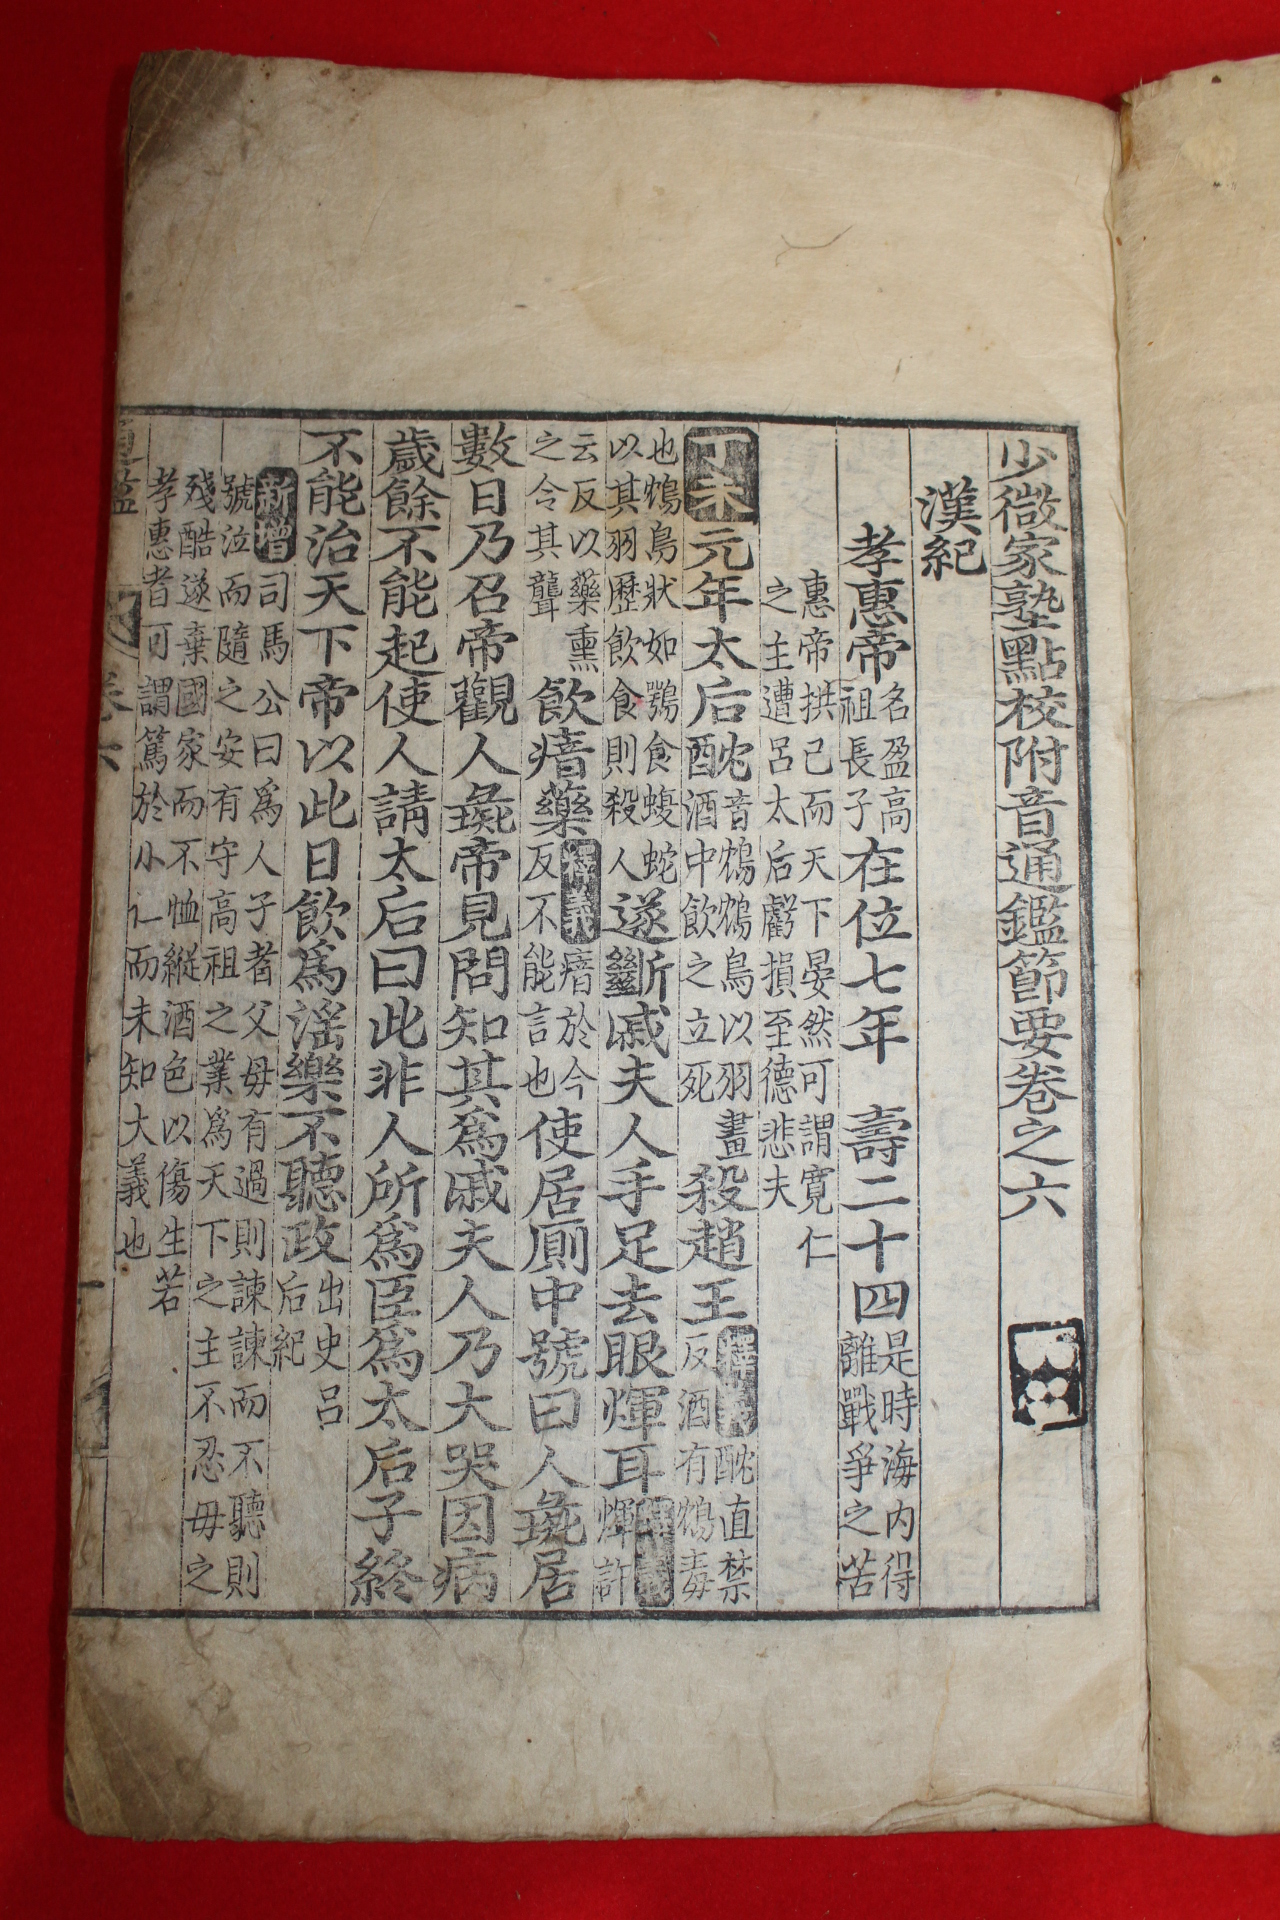 少微家塾點校附音通鑑節要卷之六
漢紀
孝惠帝 名盈高祖長子 在位七年 壽二十四 是時海內得離戰爭之苦
惠帝拱己而天下晏然可謂寬仁之主遭呂太后虧損至德悲夫
丁未 元年太后酖 音鴆鴆鳥以羽畫酒中飲之立死 殺趙王 釋義 酖直禁反酒有鴆毒
也鴆鳥狀如鶚食蝮蛇以其羽歷飲食則殺人 遂斷戚夫人手足去眼煇耳 釋義 煇許
云反以藥熏之令其聾 飲瘖藥 釋義 瘖於今反不能言也 使居厠中號曰人彘居
數日乃召帝觀人彘帝見問知其爲戚夫人乃大哭因病
歲餘不能起使人請太后曰此非人所爲臣爲太后子終
不能治天下帝以此日飲爲淫樂不聽政 出史呂后紀
新增 司馬公曰爲人子者父母有過則諫諫而不聽則
號泣而隨之安有守高祖之業爲天下之主不忍母之
殘酷遂棄國家而不恤縱酒色以傷生若
孝惠者可謂篤於小仁而未知大義也
通鑑 卷六 一